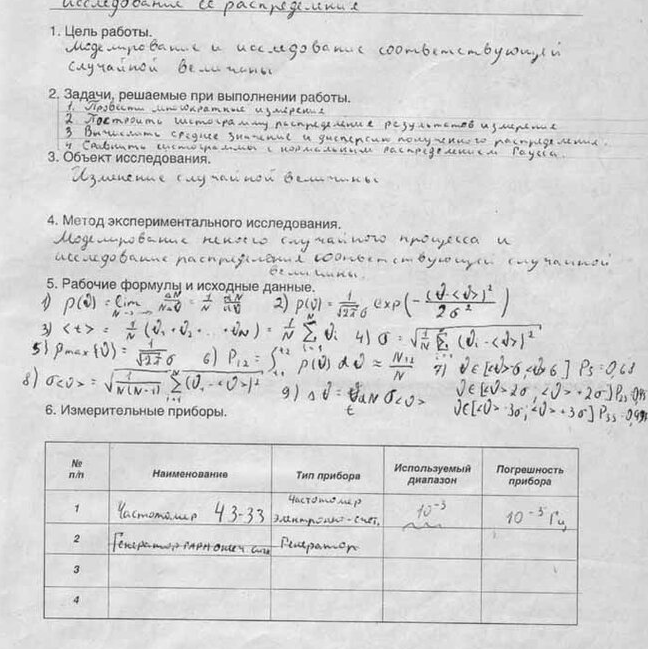 исследование её распределения
1. Цель работы.
Моделирование и исследование соответствующей
случайной величины
2. Задачи, решаемые при выполнении работы.
1. Провести многократные измерения
2. Построить гистограмму распределение результатов измерение
3 Вычислить среднее значение и дисперсию полученного распределения.
4 Сравнить гистограммы с нормальным распределением Гаусса.
3. Объект исследования.
Изменение случайной величины
4. Метод экспериментального исследования.
Моделирование некого случайного процесса и
исследование распределения соответствующей случайной
величины.
5. Рабочие формулы и исходные данные.
1) ρ(ϑ) = lim N→∞ ΔN/(NΔϑ) = 1/N dN/dϑ 2) ρ(ϑ) = 1/(√2π σ) exp(-(ϑ-<ϑ>)²/2σ²)
3) <t> = 1/N (ϑ1+ϑ2+ ... +ϑN) = 1/N ∑ ϑi 4) σ = √(1/N ∑ (ϑi-<ϑ>)²)
5) ρmax(ϑ) = 1/(√2π σ) 6) P12 = ∫ ρ(ϑ) dϑ ≈ N12/N 7) P = 0,68
8) σ<ϑ> = √(1/(N(N-1)) ∑ (ϑi-<ϑ>)²) 9) Δϑ = σ<ϑ>
6. Измерительные приборы.
№ п/п Наименование Тип прибора Используемый диапазон Погрешность прибора
1 Частотомер Ч3-33 Частотомер электронно-счет. 10⁻³ 10⁻⁵ Гц
2 Генератор Генератор
3
4